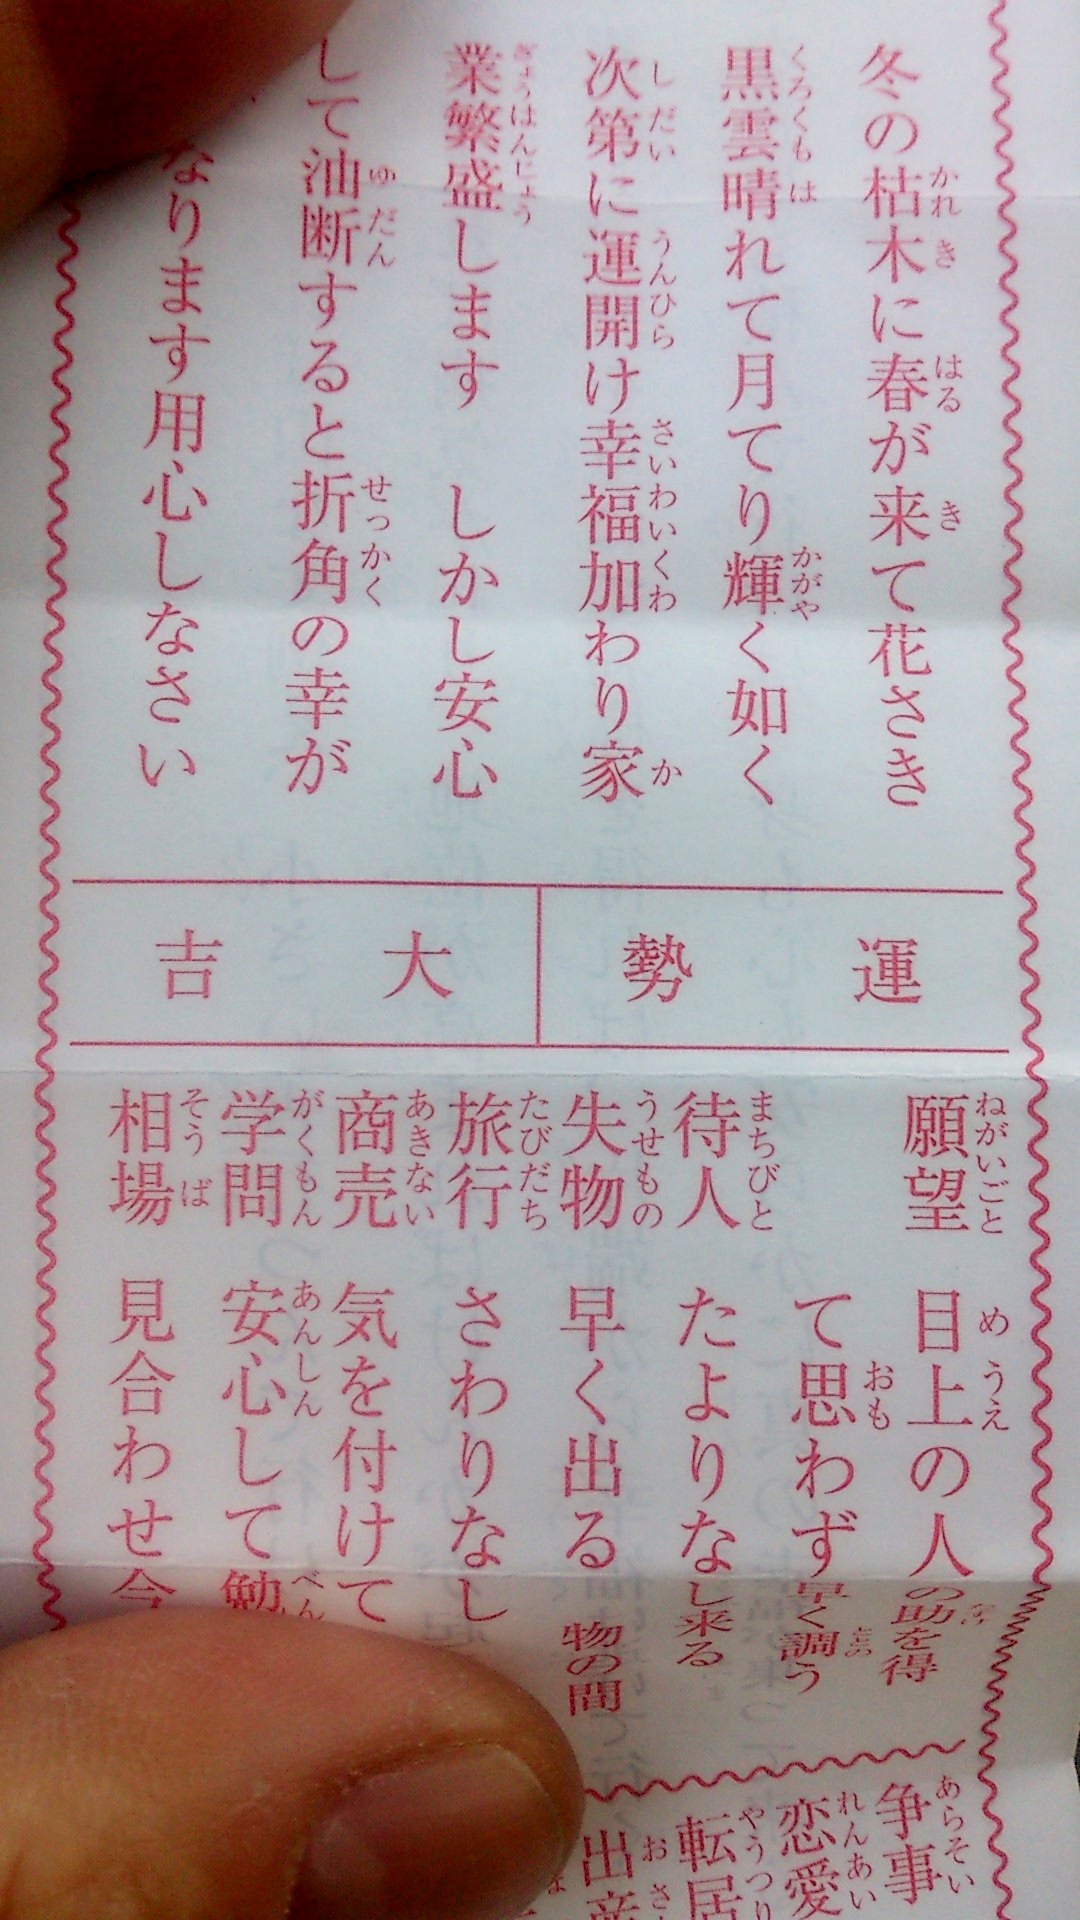 冬の枯木に春が来て花さき
黒雲晴れて月てり輝く如く
次第に運開け幸福加わり家
業繁盛します　しかし安心
して油断すると折角の幸が
なります用心しなさい
運勢
大吉
願望　目上の人の助を得
て思わず早く調う
待人　たよりなし来る
失物　早く出る　物の間
旅行　さわりなし
商売　気を付けて
学問　安心して勉
相場　見合わせ今
争事
恋愛
転居
出産